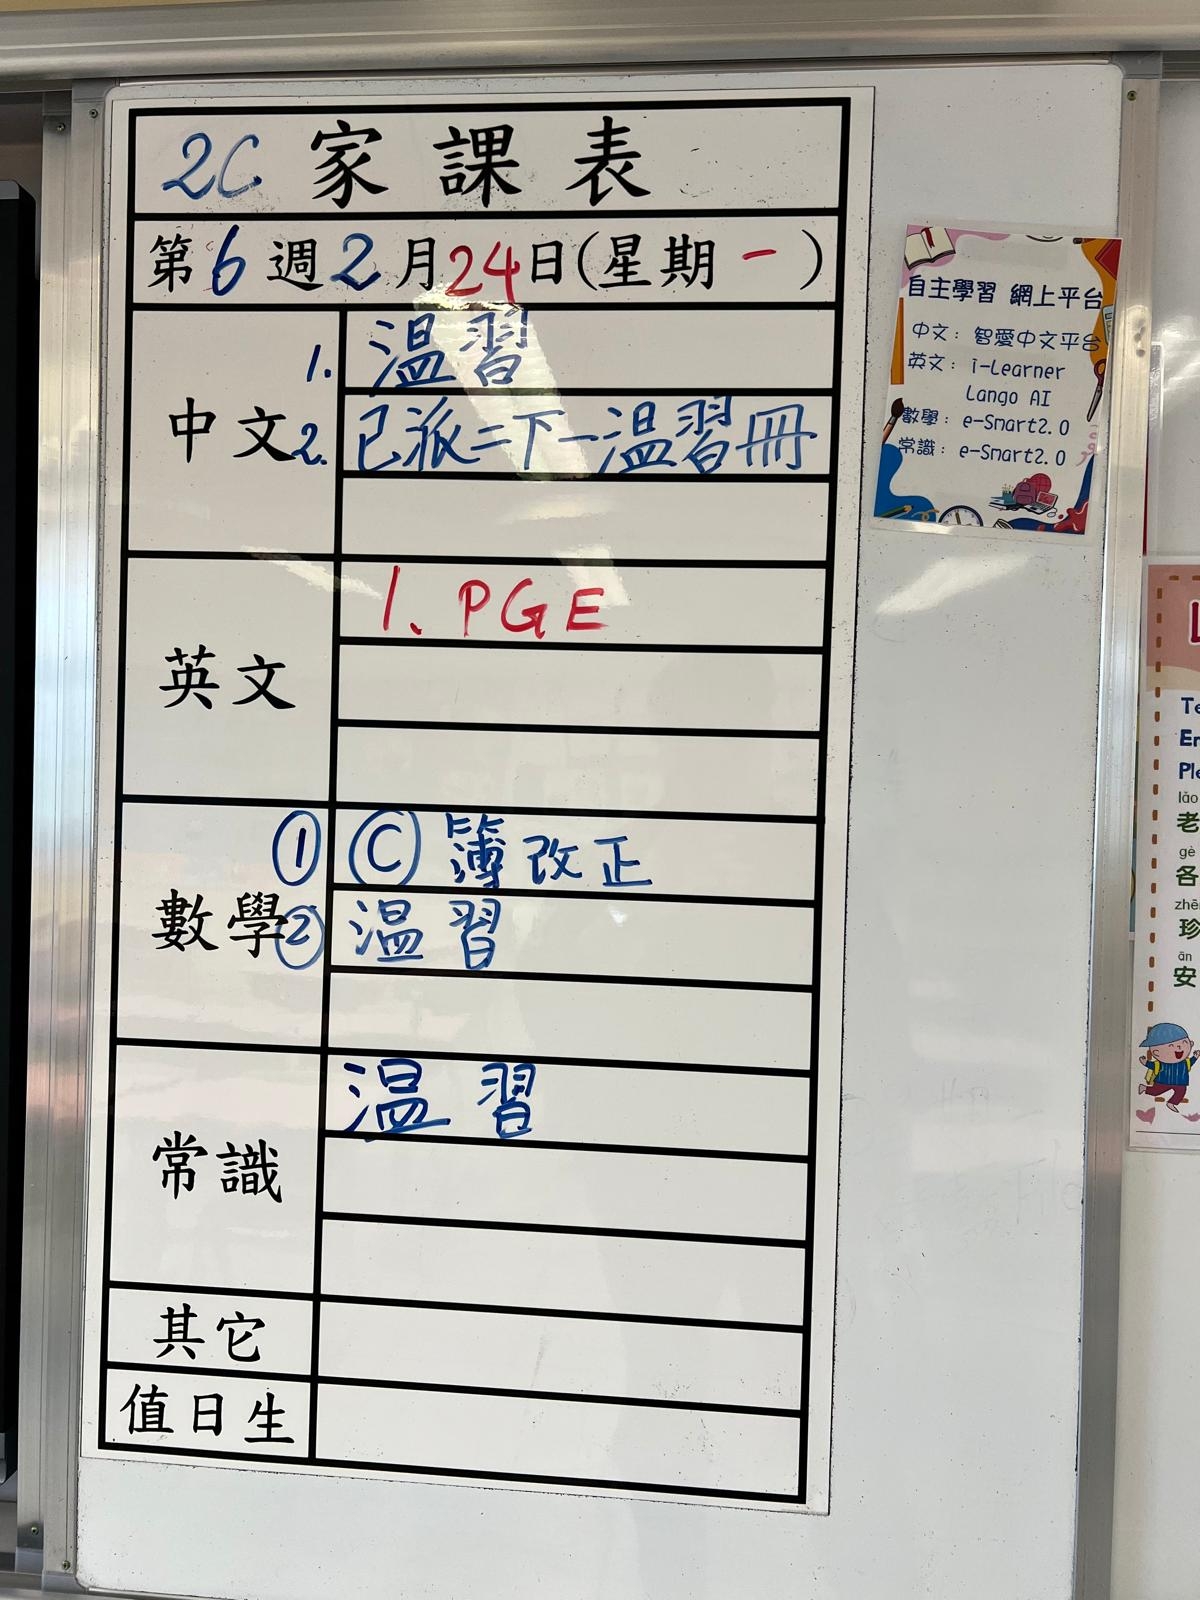 2C 家課表
第6週2月24日(星期一)
中文
1. 温習
2. 已派二下一温習冊
英文
1. PGE
數學
① Ⓒ簿改正
② 温習
常識
温習
其它
值日生
自主學習 網上平台
中文：智愛中文平台
英文：i-Learner
Lango AI
數學：e-Smart2.0
常識：e-Smart2.0
lǎo
老
gè
各
珍
ān
安